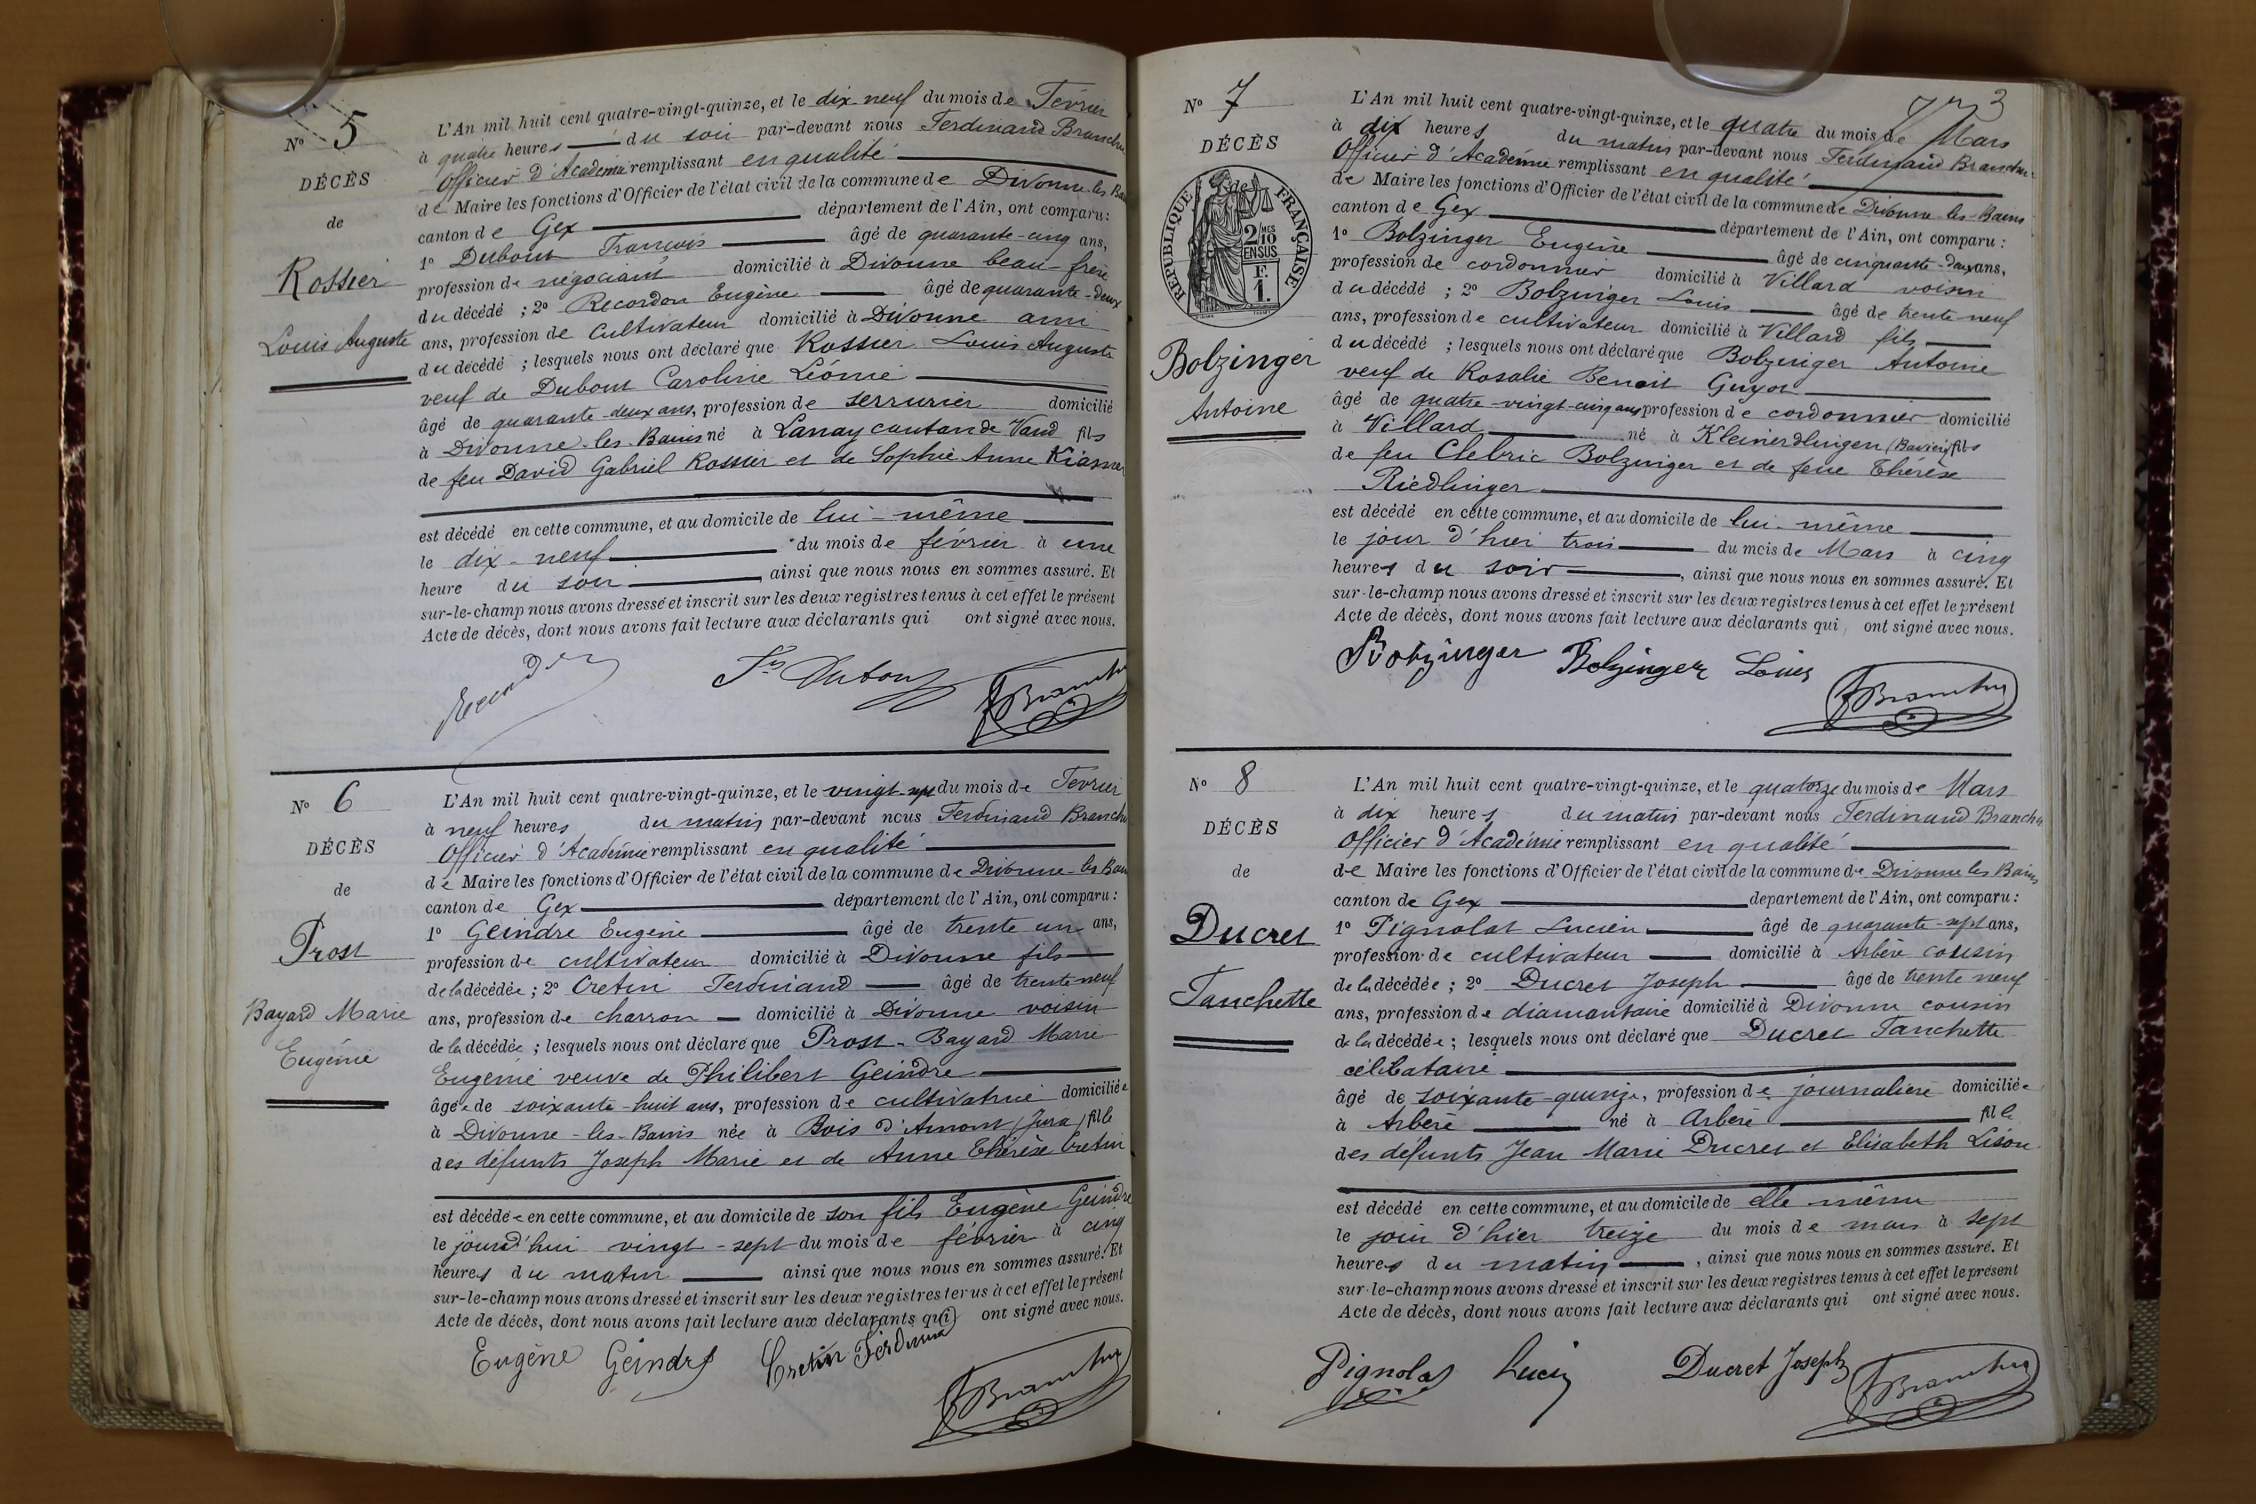 N° 5
DÉCÈS
de
Rossier
Louis Auguste
L'An mil huit cent quatre-vingt-quinze, et le dix neuf du mois de Février
à quatre heures du soir par-devant nous Ferdinand Branchu
Officier d'Académie remplissant en qualité
de Maire les fonctions d'Officier de l'état civil de la commune de Divonne-les-Ba
canton de Gex département de l'Ain, ont comparu:
1° Dubout François âgé de quarante-cinq ans,
profession de négociant domicilié à Divonne beau-frère
du décédé ; 2° Recordon Eugène âgé de quarante-deux
ans, profession de Cultivateur domicilié à Divonne ami
du décédé ; lesquels nous ont déclaré que Rossier Louis Auguste
veuf de Dubout Caroline Léonie
âgé de quarante-deux ans, profession de serrurier domicilié
à Divonne-les-Bains né à Lanay canton de Vaud fils
de feu David Gabriel Rossier et de Sophie Anne
est décédé en cette commune, et au domicile de lui-même
le dix-neuf du mois de février à une
heure du soir ainsi que nous nous en sommes assuré. Et
sur-le-champ nous avons dressé et inscrit sur les deux registres tenus à cet effet le présent
Acte de décès, dont nous avons fait lecture aux déclarants qui ont signé avec nous.
Recordon Fs Dubout FBranchu
N° 6
DÉCÈS
de
Prost
Bayard Marie
Eugénie
L'An mil huit cent quatre-vingt-quinze, et le vingt-sept du mois de Février
à neuf heures du matin par-devant nous Ferdinand Branchu
Officier d'Académie remplissant en qualité
de Maire les fonctions d'Officier de l'état civil de la commune de Divonne-les-Bain
canton de Gex département de l'Ain, ont comparu:
1° Geindre Eugène âgé de trente un ans,
profession de cultivateur domicilié à Divonne fils
de la décédée ; 2° Cretin Ferdinand âgé de trente neuf
ans, profession de charron domicilié à Divonne voisin
de la décédée ; lesquels nous ont déclaré que Prost-Bayard Marie
Eugénie veuve de Philibert Geindre
âgée de soixante-huit ans, profession de cultivatrice domiciliée
à Divonne-les-Bains née à Bois d'Amont (Jura) fille
des défunts Joseph Marie et de Anne Thérèse Cretin
est décédée en cette commune, et au domicile de son fils Eugène Geindre
le jourd'hui vingt-sept du mois de février à cinq
heures du matin ainsi que nous nous en sommes assuré. Et
sur-le-champ nous avons dressé et inscrit sur les deux registres tenus à cet effet le présent
Acte de décès, dont nous avons fait lecture aux déclarants qui ont signé avec nous.
Eugène Geindre Cretin Ferdinand FBranchu
3
N° 7
DÉCÈS
de
RÉPUBLIQUE FRANÇAISE
2/10
MES
EN SUS
F.
1.
Bolzinger
Antoine
L'An mil huit cent quatre-vingt-quinze, et le quatre du mois de Mars
à dix heures du matin par-devant nous Ferdinand Branchu
Officier d'Académie remplissant en qualité
de Maire les fonctions d'Officier de l'état civil de la commune de Divonne-les-Bains
canton de Gex département de l'Ain, ont comparu :
1° Bolzinger Eugène âgé de cinquante-deux ans,
profession de cordonnier domicilié à Villard voisin
du décédé ; 2° Bolzinger Louis âgé de trente neuf
ans, profession de cultivateur domicilié à Villard fils
du décédé ; lesquels nous ont déclaré que Bolzinger Antoine
veuf de Rosalie Benoit Guyot
âgé de quatre-vingt-cinq ans profession de cordonnier domicilié
à Villard né à Kleinerdlingen (Bavière) fils
de feu Clebric Bolzinger et de feue Thérèse
Riedlinger
est décédé en cette commune, et au domicile de lui-même
le jour d'hier trois du mois de Mars à cinq
heures du soir, ainsi que nous nous en sommes assuré. Et
sur-le-champ nous avons dressé et inscrit sur les deux registres tenus à cet effet le présent
Acte de décès, dont nous avons fait lecture aux déclarants qui ont signé avec nous.
Bolzinger Bolzinger Louis FBranchu
N° 8
DÉCÈS
de
Ducret
Fanchette
L'An mil huit cent quatre-vingt-quinze, et le quatorze du mois de Mars
à dix heures du matin par-devant nous Ferdinand Branchu
Officier d'Académie remplissant en qualité
de Maire les fonctions d'Officier de l'état civil de la commune de Divonne les Bains
canton de Gex département de l'Ain, ont comparu :
1° Pignolat Lucien âgé de quarante-sept ans,
profession de cultivateur domicilié à Arbère cousin
de la décédée ; 2° Ducret Joseph âgé de trente neuf
ans, profession de diamantaire domicilié à Divonne cousin
de la décédée ; lesquels nous ont déclaré que Ducret Fanchette
célibataire
âgé de soixante-quinze, profession de journalière domiciliée
à Arbère né à Arbère fille
des défunts Jean Marie Ducret et Elisabeth Lison
est décédé en cette commune, et au domicile de elle même
le jour d'hier treize du mois de mars à sept
heures du matin, ainsi que nous nous en sommes assuré. Et
sur-le-champ nous avons dressé et inscrit sur les deux registres tenus à cet effet le présent
Acte de décès, dont nous avons fait lecture aux déclarants qui ont signé avec nous.
Pignolat Lucien Ducret Joseph FBranchu